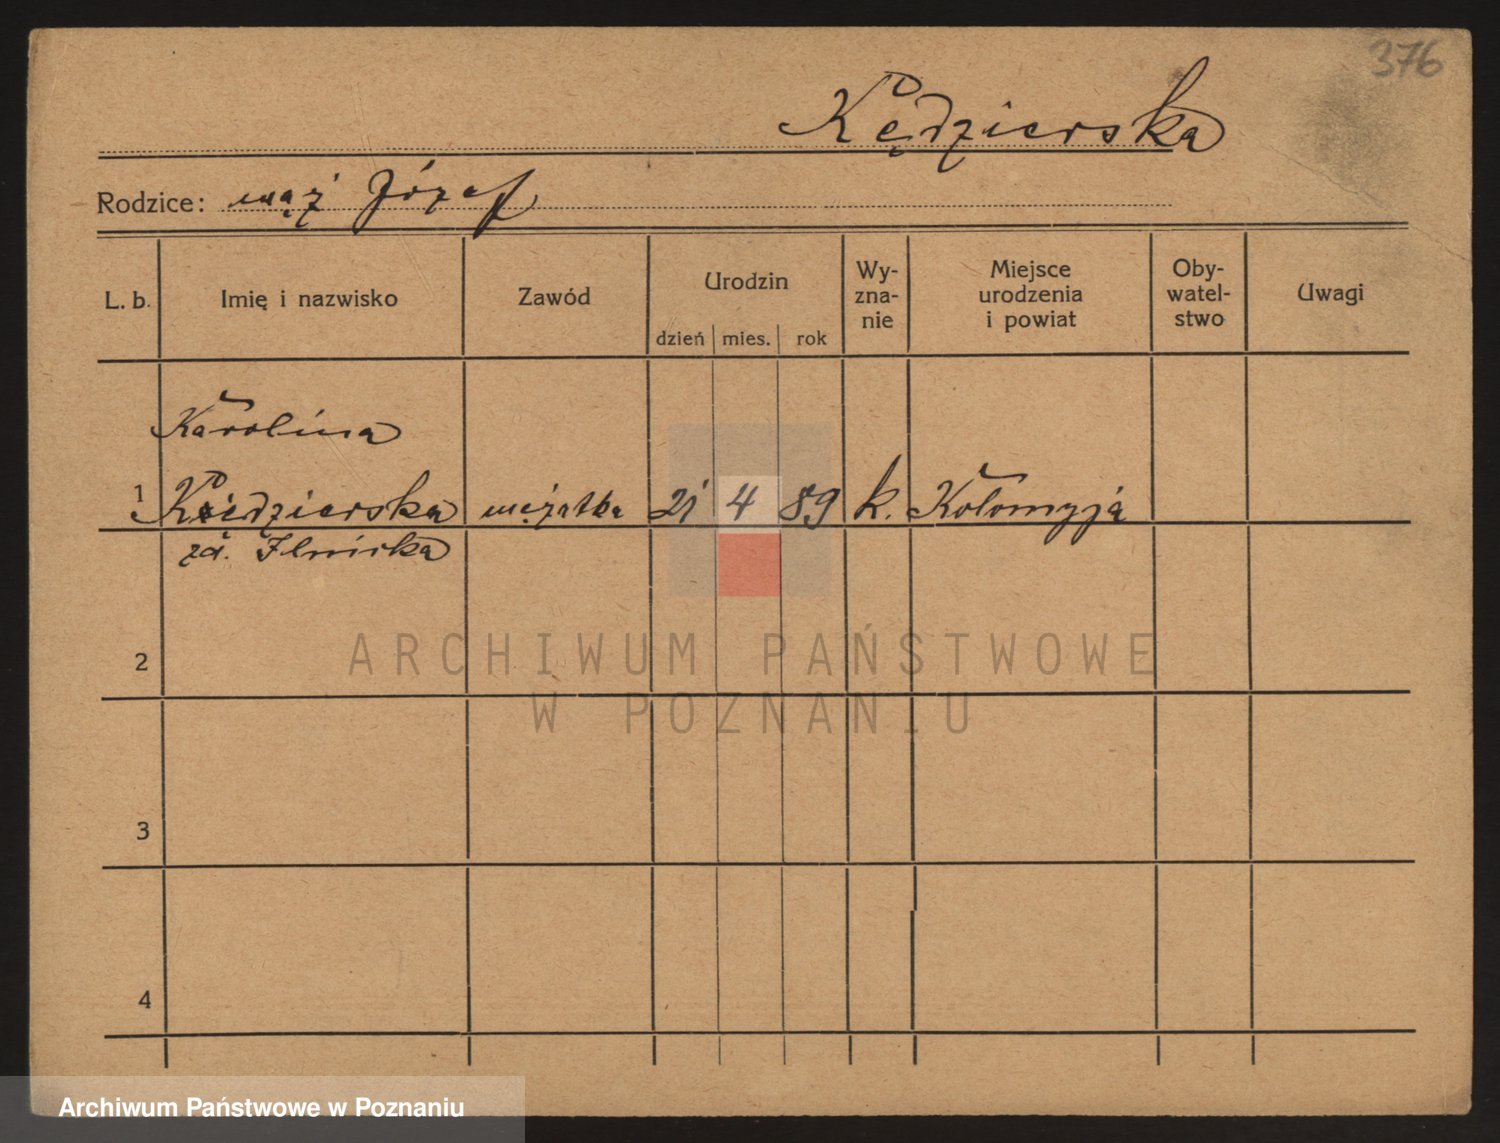 376
Kędzierska
Rodzice: mąż Józef
L. b. Imię i nazwisko Zawód Urodzin dzień mies. rok Wy-zna-nie Miejsce urodzenia i powiat Oby-watel-stwo Uwagi
Karolina
1 Kędzierska mężatka 21 4 89 k. Kołomyja
zd. Ilnicka
2
ARCHIWUM PAŃSTWOWE
W POZNANIU
3
4
Archiwum Państwowe w Poznaniu